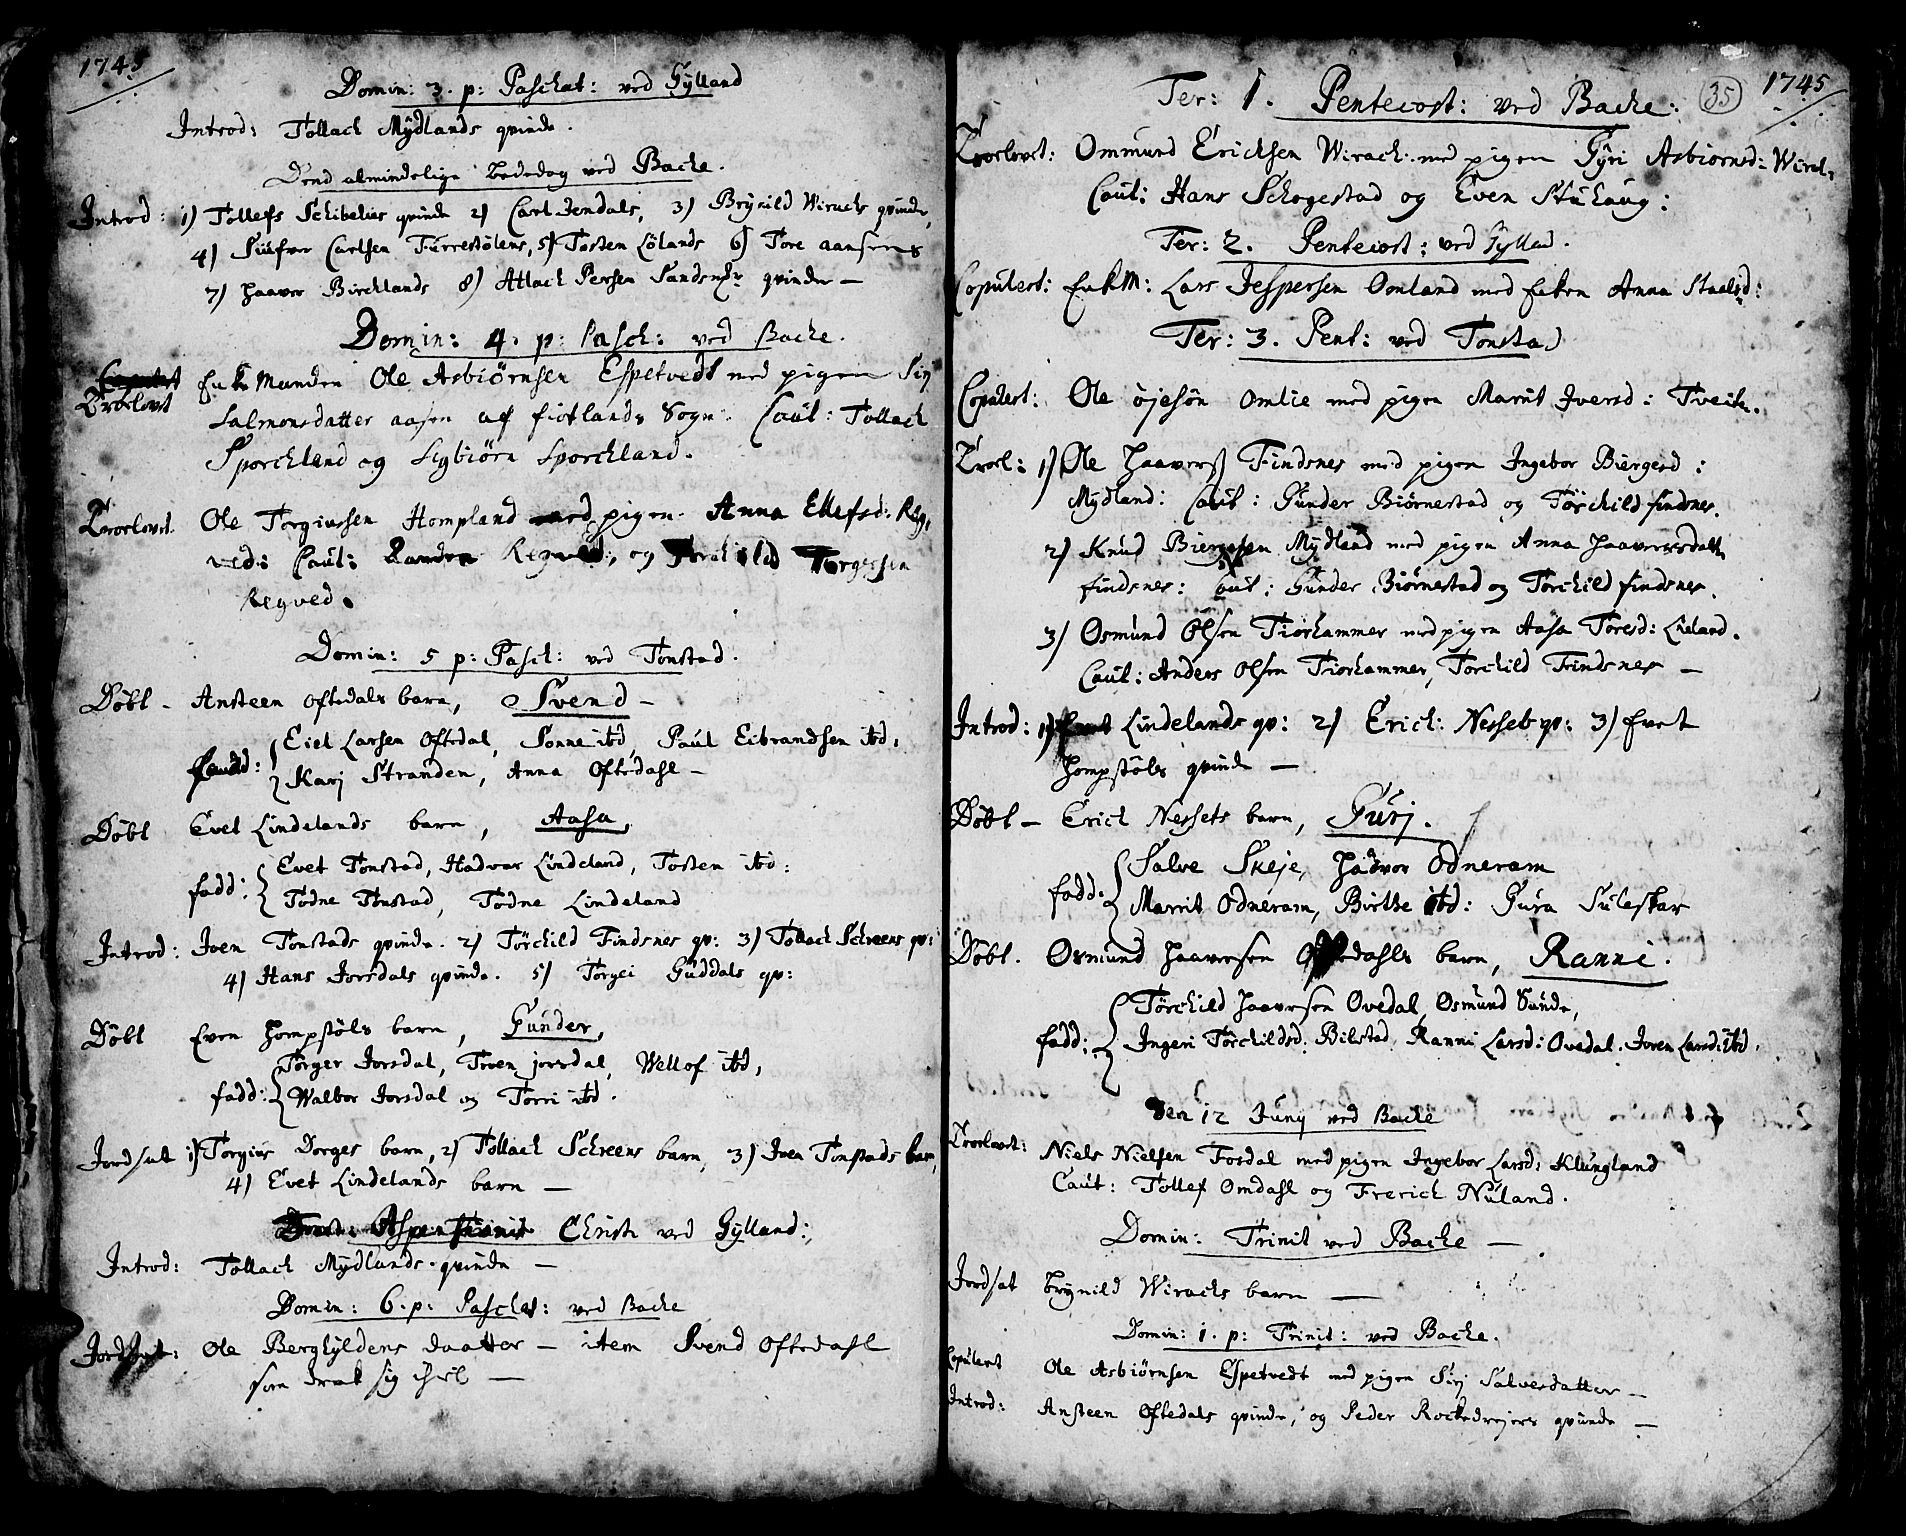 1745
Domin: 3. p: Paschat: ved Gylland
Introd: Tollach Mydlands qvinde.
Dend almindelige Bededag ved Backe.
Introd: 1) Tollefs Schibelies qvinde 2) Carl Jendals, 3) Brynild Wirachs qvinde,
4) Siufver Carlsen Furrestölens, 5) Tosten Lölands 6) Tore aansens
7) Haaver Bircklands 8) Atlach Persen Sandsmrk qvinder —
Domin: 4. p: Pasch: ved Backe.
Troelovet Enke Manden Ole Asbiörnsen Espetvedt med pigen Sirj
Salmonsdatter aasen af fiotlands Sogn: Caut: Tollach
Sporckland og Sigbiörn Sporckland.
Troelovet. Ole Torgiussen Hompland med pigen Anna Ellefsd: Reg-
ved: Caut: Regved, og Torgersen
Regved.
Domin: 5 p: Pasch: ved Tonstad.
Döbt - Ansteen Oftedals barn, Svend —
fadd: Eiel Larsen Oftedal, Sonne ibd, Paul Eibrandsen ibd,
Karj Stranden, Anna Oftedahl —
Döbt Evet Lindelands barn, Aasa,
fadd: Evet Tonstad, Hadvar Lindeland, Tosten ibd:
Todne Tonstad, Todne Lindeland
Introd: Iven Tonstads qvinde. 2) Törchild Findsnes qv: 3) Tollach Schreens qv:
4) Hans Jorsdals qvinde. 5) Torgei Guddals qv:
Döbt Even Hompstöls barn, Gunder,
Törger Jorsdal, Troen jorsdal, Wellof ibd,
fadd: Walbor Jorsdal og Torri ibd.
Jordsat 1) Torgius Dorges barn, 2) Tollach Schreens barn, 3) Iven Tonstads barn,
4) Evet Lindelands barn —
Christi ved Gylland:
Introd: Tollach Mydlands qvinde —
Domin: 6. p: Paschat: ved Backe
Jordsat: Ole Berghyldens daatter — item Svend Oftedahl
som drak sig ihiel —
1745
35
Ter: 1. Pentecost: ved Backe:
Troelovet: Ommund Ericksen Wirach med pigen Gyri Asbiornsd: Wirach
Caut: Hans Schogestad og Even Stuhaug:
Ter: 2. Pentecost: ved Gylland.
Copulert: EnkM: Lars Jespersen Omland med Enken Anna Staalsd:
Ter: 3. Pent: ved Tonstad
Copulert: Ole öjesön Omlie med pigen Marrit Iversd: Tveiten.
Troel: 1) Ole Haavers Findsnes med pigen Ingebor Biergesd:
Mydland: Caut: Gunder Biörnestad og Törchild findsnes.
2) Knud Biergesen Mydland med pigen Anna Haaversdatter
findsnes: Caut: Gunder Biörnestad og Törchild findsnes.
3) Osmund Olsen Fiorhammer med pigen Aasa Toresd: Lieland.
Caut: Anders Olsen Fiorhammer, Torchild Findsnes —
Introd: 1) Lindelands qv: 2) Erich: Nesset qv: 3) Evet
Hompstöls qvinde —
Döbt — Erich Nessets barn, Gurj.
fadd: Salve Skeje, Hadvor Odneram
Marrit Odneram, Birthe ibd: Gura Suleskar
Döbt. Osmund Haaversen Oftedahls barn, Ranni.
Törchild Haaversen Ovedal, Osmund Sunde,
fadd: Ingeri Törchildsd: Bilstad, Ranni Larsd: Ovedal, Joren Larsd: ibd.
Den 12 Juny ved Backe
Troelovet: Niels Nielsen Fosdal med pigen Ingebor Larsd: Klungland
Caut: Tollef Omdahl og Frerich Nuland.
Domin: Trinit ved Backe —
Jordsat Brynild Wirachs barn —
Domin: 1. p: Trinit: ved Backe.
Copulert Ole Asbiörnsen Espetvedt med pigen Sirj Salvesdatter —
Introd: Ansteen Oftedals qvinde, og Peder Rockedrejers qvinde —